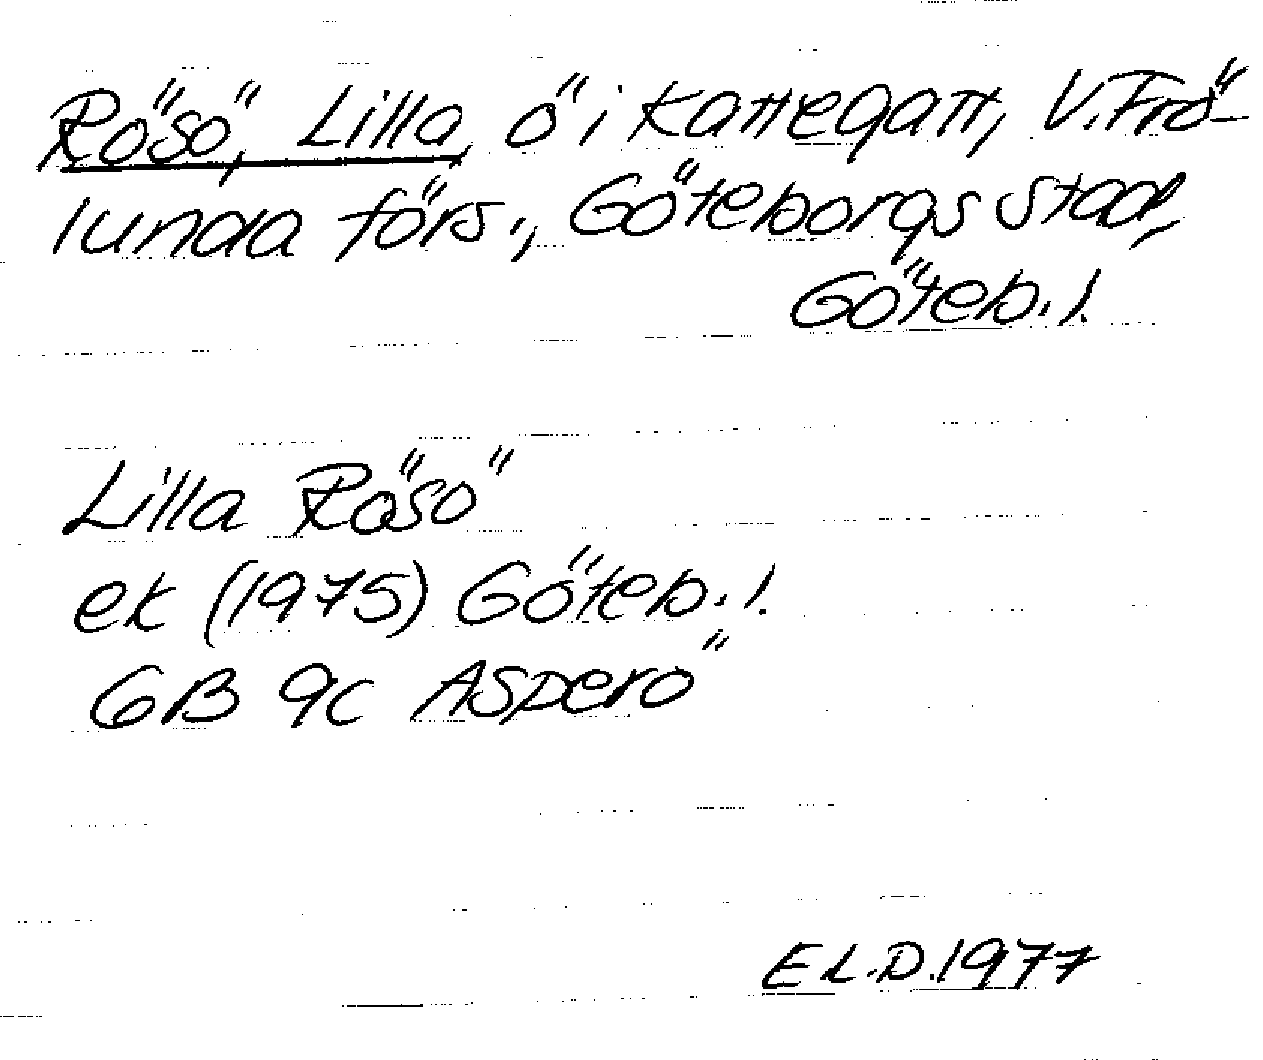 Rösö, Lilla, ö i Kattegatt, V. Frö-
lunda förs., Göteborgs stad,
Göteb. l.
Lilla Rösö
ek (1975) Göteb. l.
GB 9c Asperö
E L.D. 1977